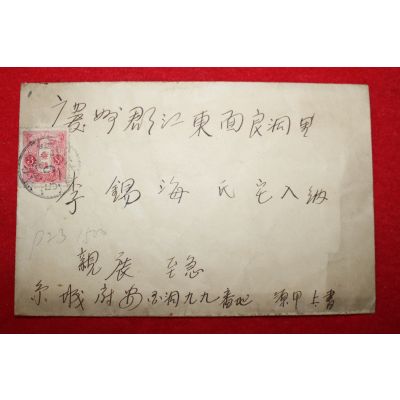 慶州郡江東面良洞里
李錫海氏宅入納
P23 1500
親展 至急
京城府安国洞九九番地 源甲上書